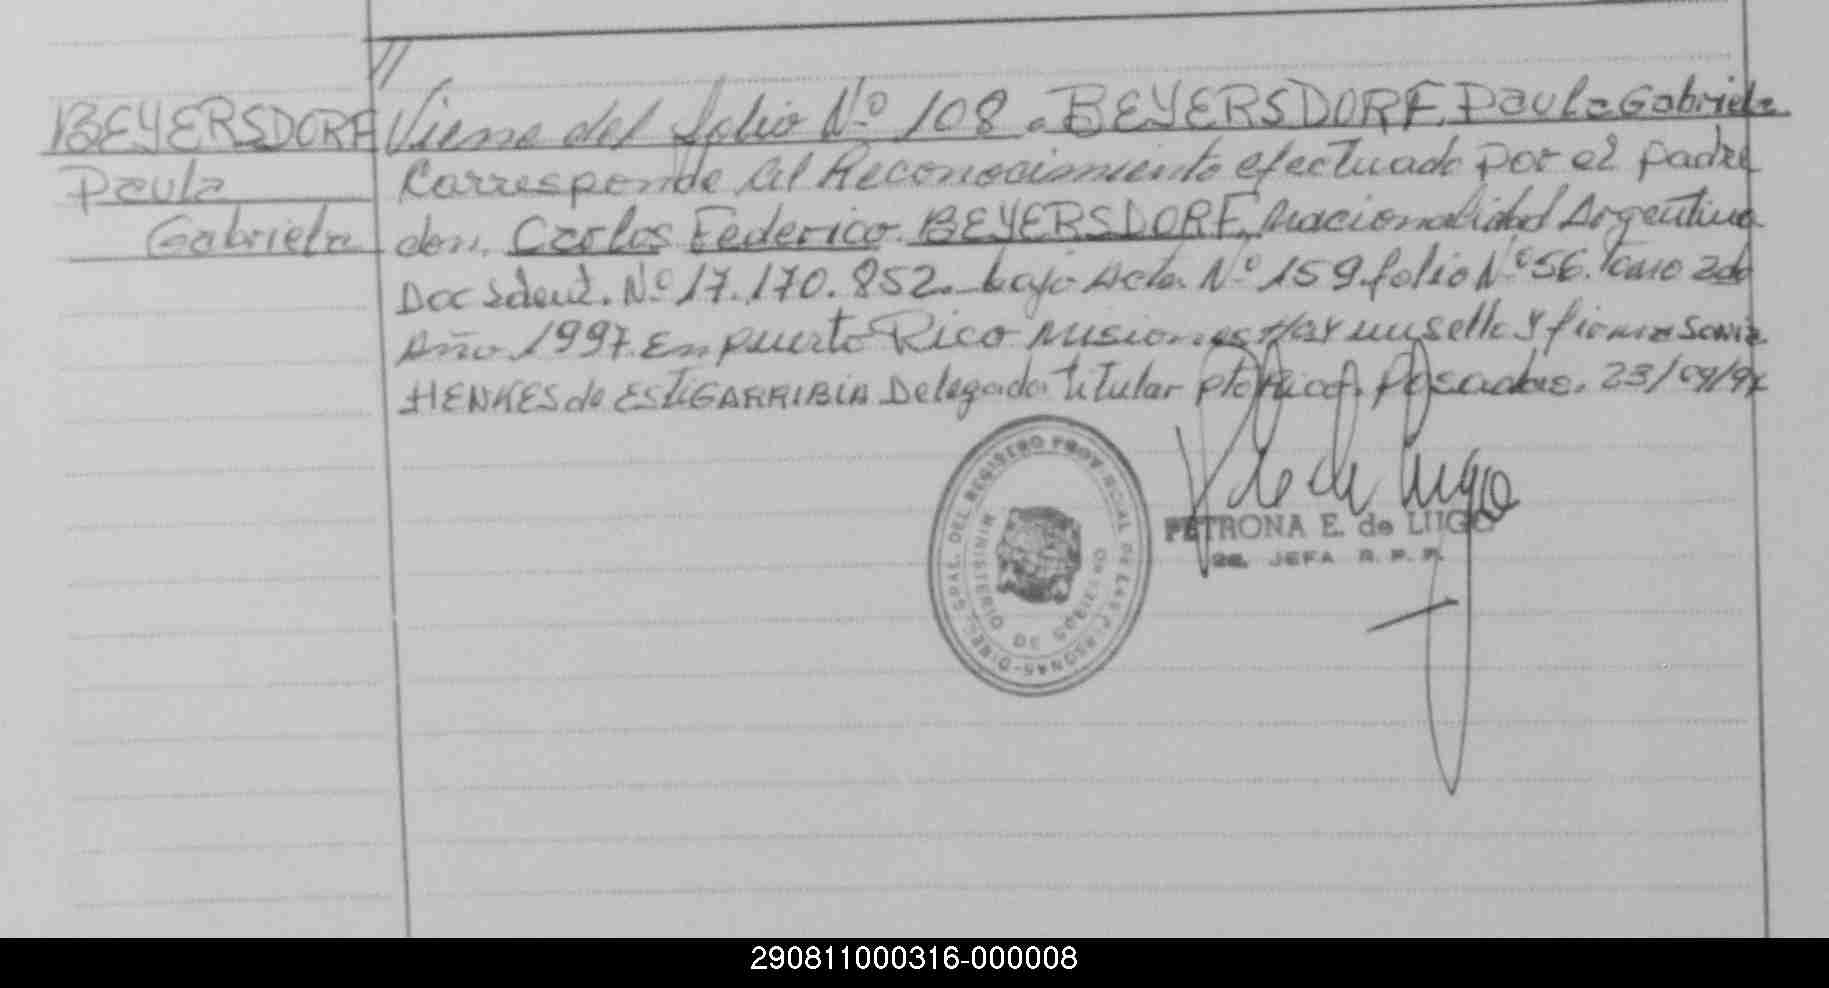 //
BEYERSDORF
Paula
Gabriela
Viene del folio Nº 108. BEYERSDORF, Paula Gabriela
Corresponde al Reconocimiento efectuado por el padre
don. Carlos Federico BEYERSDORF, nacionalidad Argentina
Doc Ident. Nº 17.170.852. bajo Acta Nº 159 folio Nº 56. Tomo 2do
Año 1997. En puerto Rico Misiones Hay un sello y firma Sonia
HENKES de ESTIGARRIBIA Delegada titular Pto Rico. Posadas. 23/09/97
DIREC. GRAL. DEL REGISTRO PROVINCIAL DE LAS PERSONAS
MINISTERIO DE GOBIERNO
PETRONA E. de LUGO
JEFA R. P. P.
290811000316-000008